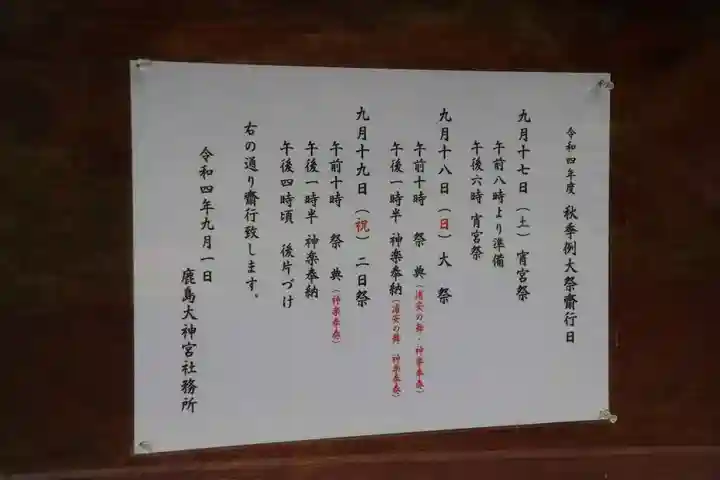 令和四年度 秋季例大祭齋行日
九月十七日（土）宵宮祭
午前八時より準備
午後六時 宵宮祭
九月十八日（日）大 祭
午前十時 祭 典（浦安の舞・神楽奉奏）
午後一時半 神楽奉納（浦安の舞 神楽奉奏）
九月十九日（祝）二日祭
午前十時 祭 典（神楽奉奏）
午後一時半 神楽奉納
午後四時頃 後片づけ
右の通り齋行致します。
令和四年九月一日
鹿島大神宮社務所